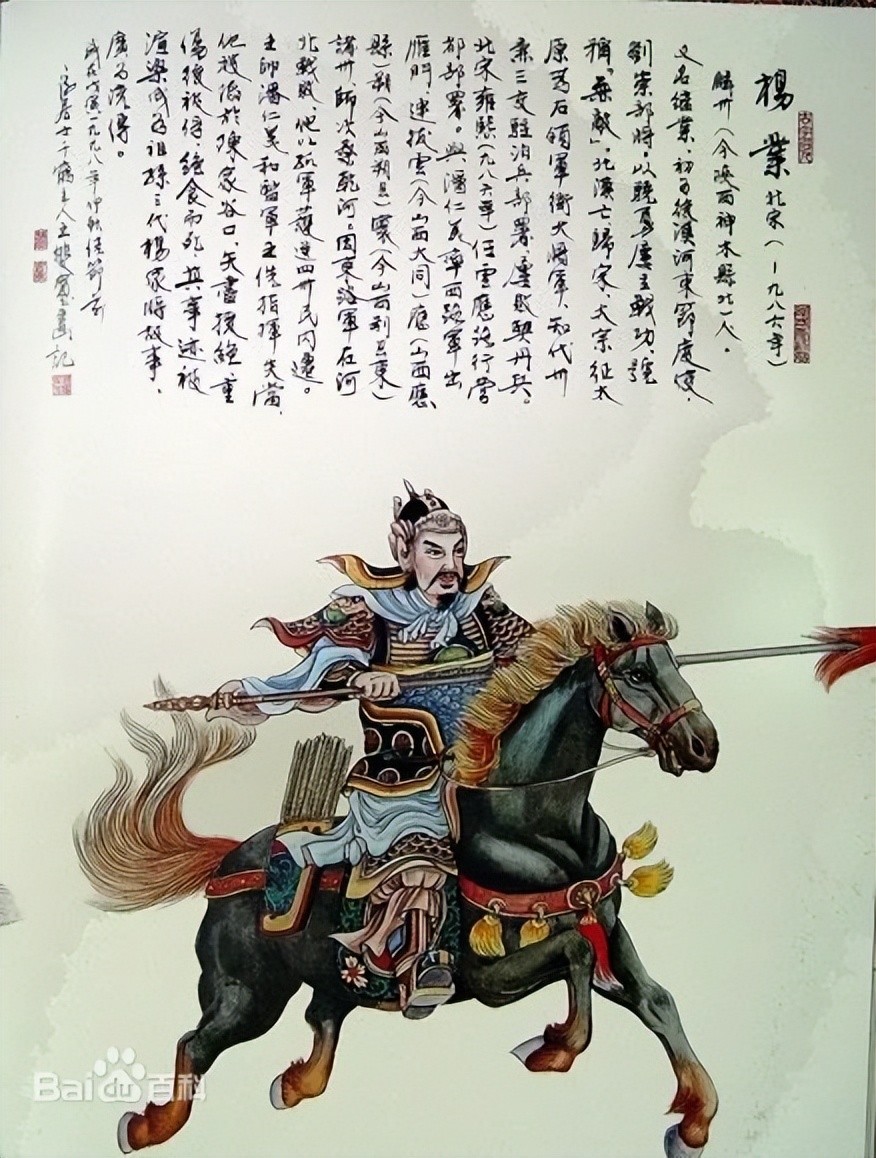 楊業 北宋(一九八六年)
麟州(今陝西神木縣北)人。
又名繼業,初為後漢河東節度使,
劉崇部將,以驍勇屢立戰功,號
稱“無敵”,北漢亡歸宋,太宗征太
原為右領軍衛大將軍,知代州
兼三交駐泊兵部署,屢敗契丹兵。
北宋雍熙(九八六年)任雲應路行營
都部署。與潘仁美率西路軍出
雁門,連拔雲(今山西大同)應(山西應
縣)朔(今山西朔县)寰(今山西朔县東)
諸州師次桑乾河。因東路軍在河
北戰敗,他以孤軍護送四州民內遷。
主帥潘仁美和監軍王侁指揮失當,
他趕陷於陳家谷口,矢盡援絕,重
傷後被俘,絕食而死,其事迹被
渲染成為祖孫三代楊家將故事,
廣為流傳。
歲在戊寅一九九八年仲秋佳節前
居士千鶴主人王 畫記
Bai百科